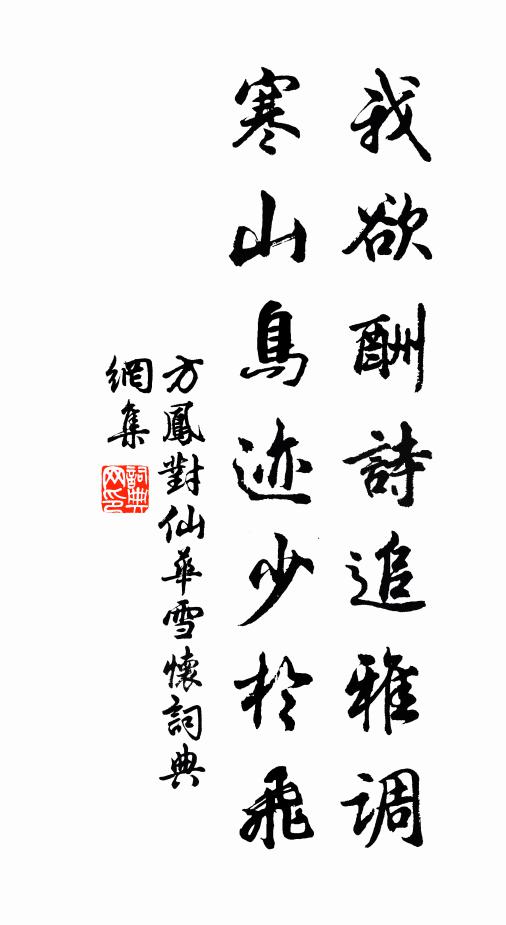 我欲酬詩追雅调
寒山鳥迹少於飛
方鳳對仙華雪懷詞典
網集
詞典
网印